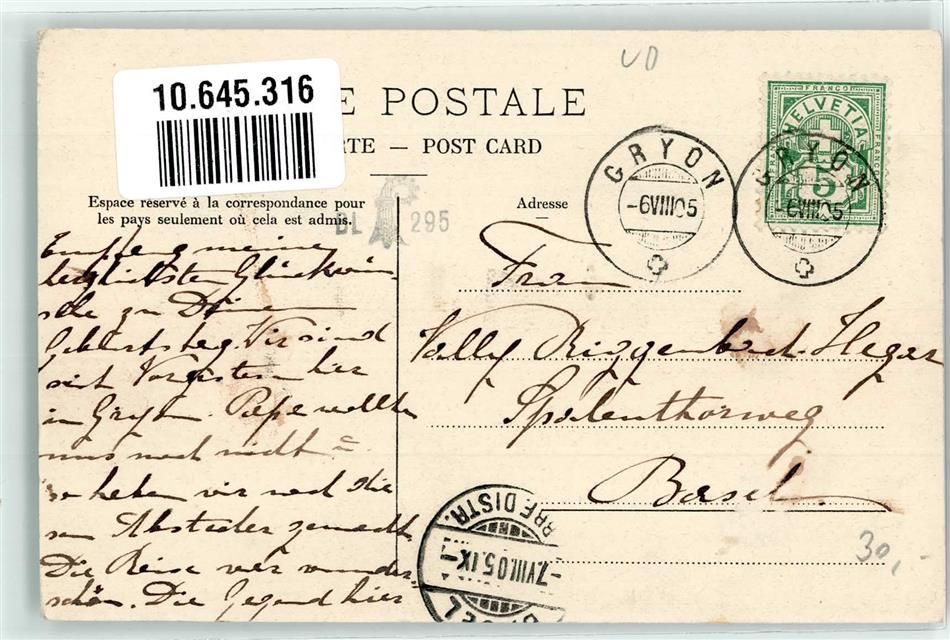 VD
10.645.316
E POSTALE
RTE — POST CARD
Espace réservé à la correspondance pour
les pays seulement où cela est admis.
BL 295
Adresse
FRANCO
HELVETIA
5
GRYON
-6VIII05
GRYON
-6VIII05
Empfang meine
herzlichsten Glückwün-
sche zu Deinem
Geburtstag. Wir sind
seit Vorgestern hier
in Gryon. Pape wollte
uns noch nicht
so haben wir noch die
sen Abstecher gemacht
Die Reise war wunder-
schön. Die Gegend hier
Frau
Vally Riggenbach-Heger
Spalenthorweg
Basel
BRE DISTR.
-7.VIII.05.IX-
BASEL
30,-